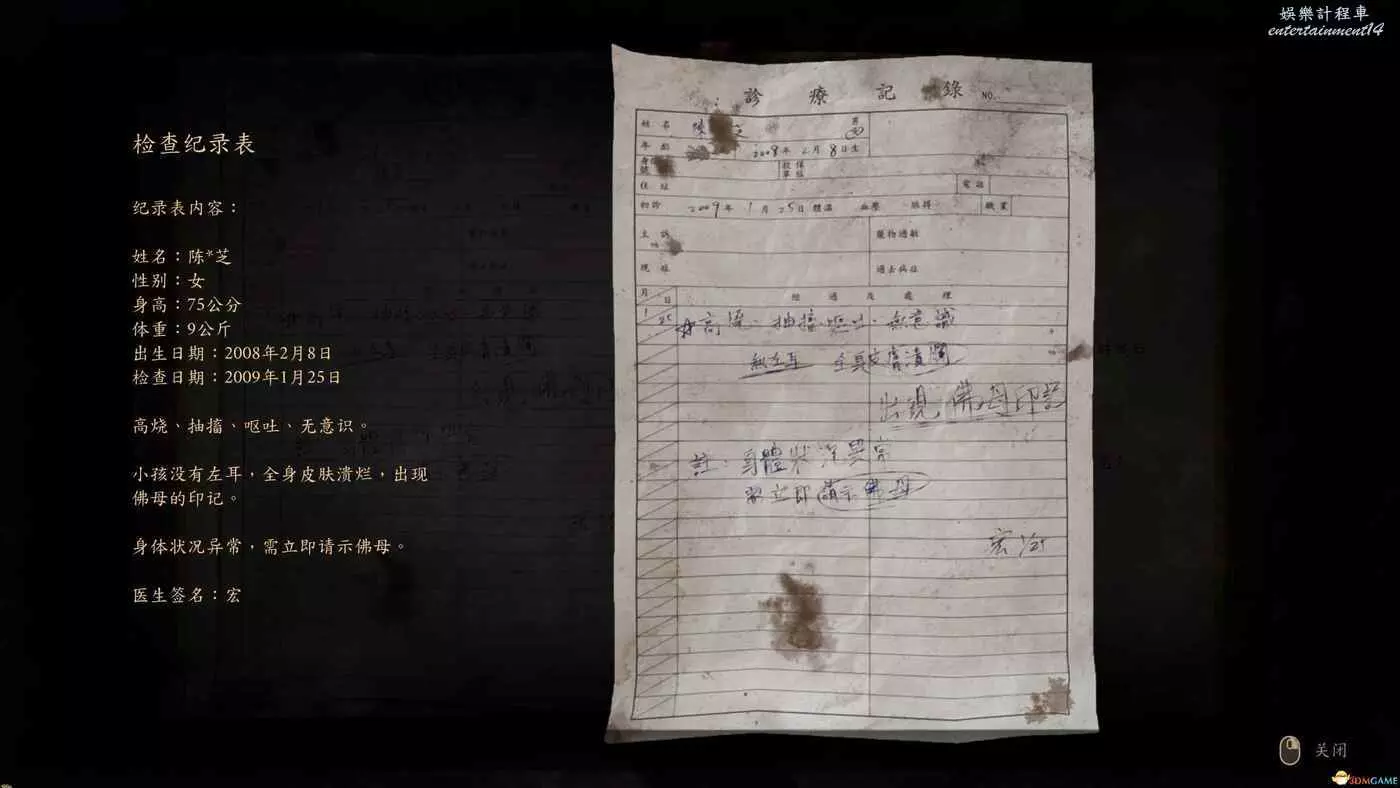 娛樂計程車
entertainment14
检查纪录表
纪录表内容：
姓名：陈*芝
性别：女
身高：75公分
体重：9公斤
出生日期：2008年2月8日
检查日期：2009年1月25日
高烧、抽搐、呕吐、无意识。
小孩没有左耳，全身皮肤溃烂，出现
佛母的印记。
身体状况异常，需立即请示佛母。
医生签名：宏
診療記錄 NO.
姓名 陳 芝 男
年齡 2008年2月8日生
投保單位
住址 電話
初診 2009年1月25日 體溫 血壓 脈搏 職業
主訴 藥物過敏
現症 過去病症
月 日 經過及處理
1 25 高燒、抽搐、嘔吐、無意識
無左耳 全身皮膚潰爛
出現佛母印記
註：身體狀況異常
需立即請示佛母
宏
关闭
3DMGAME